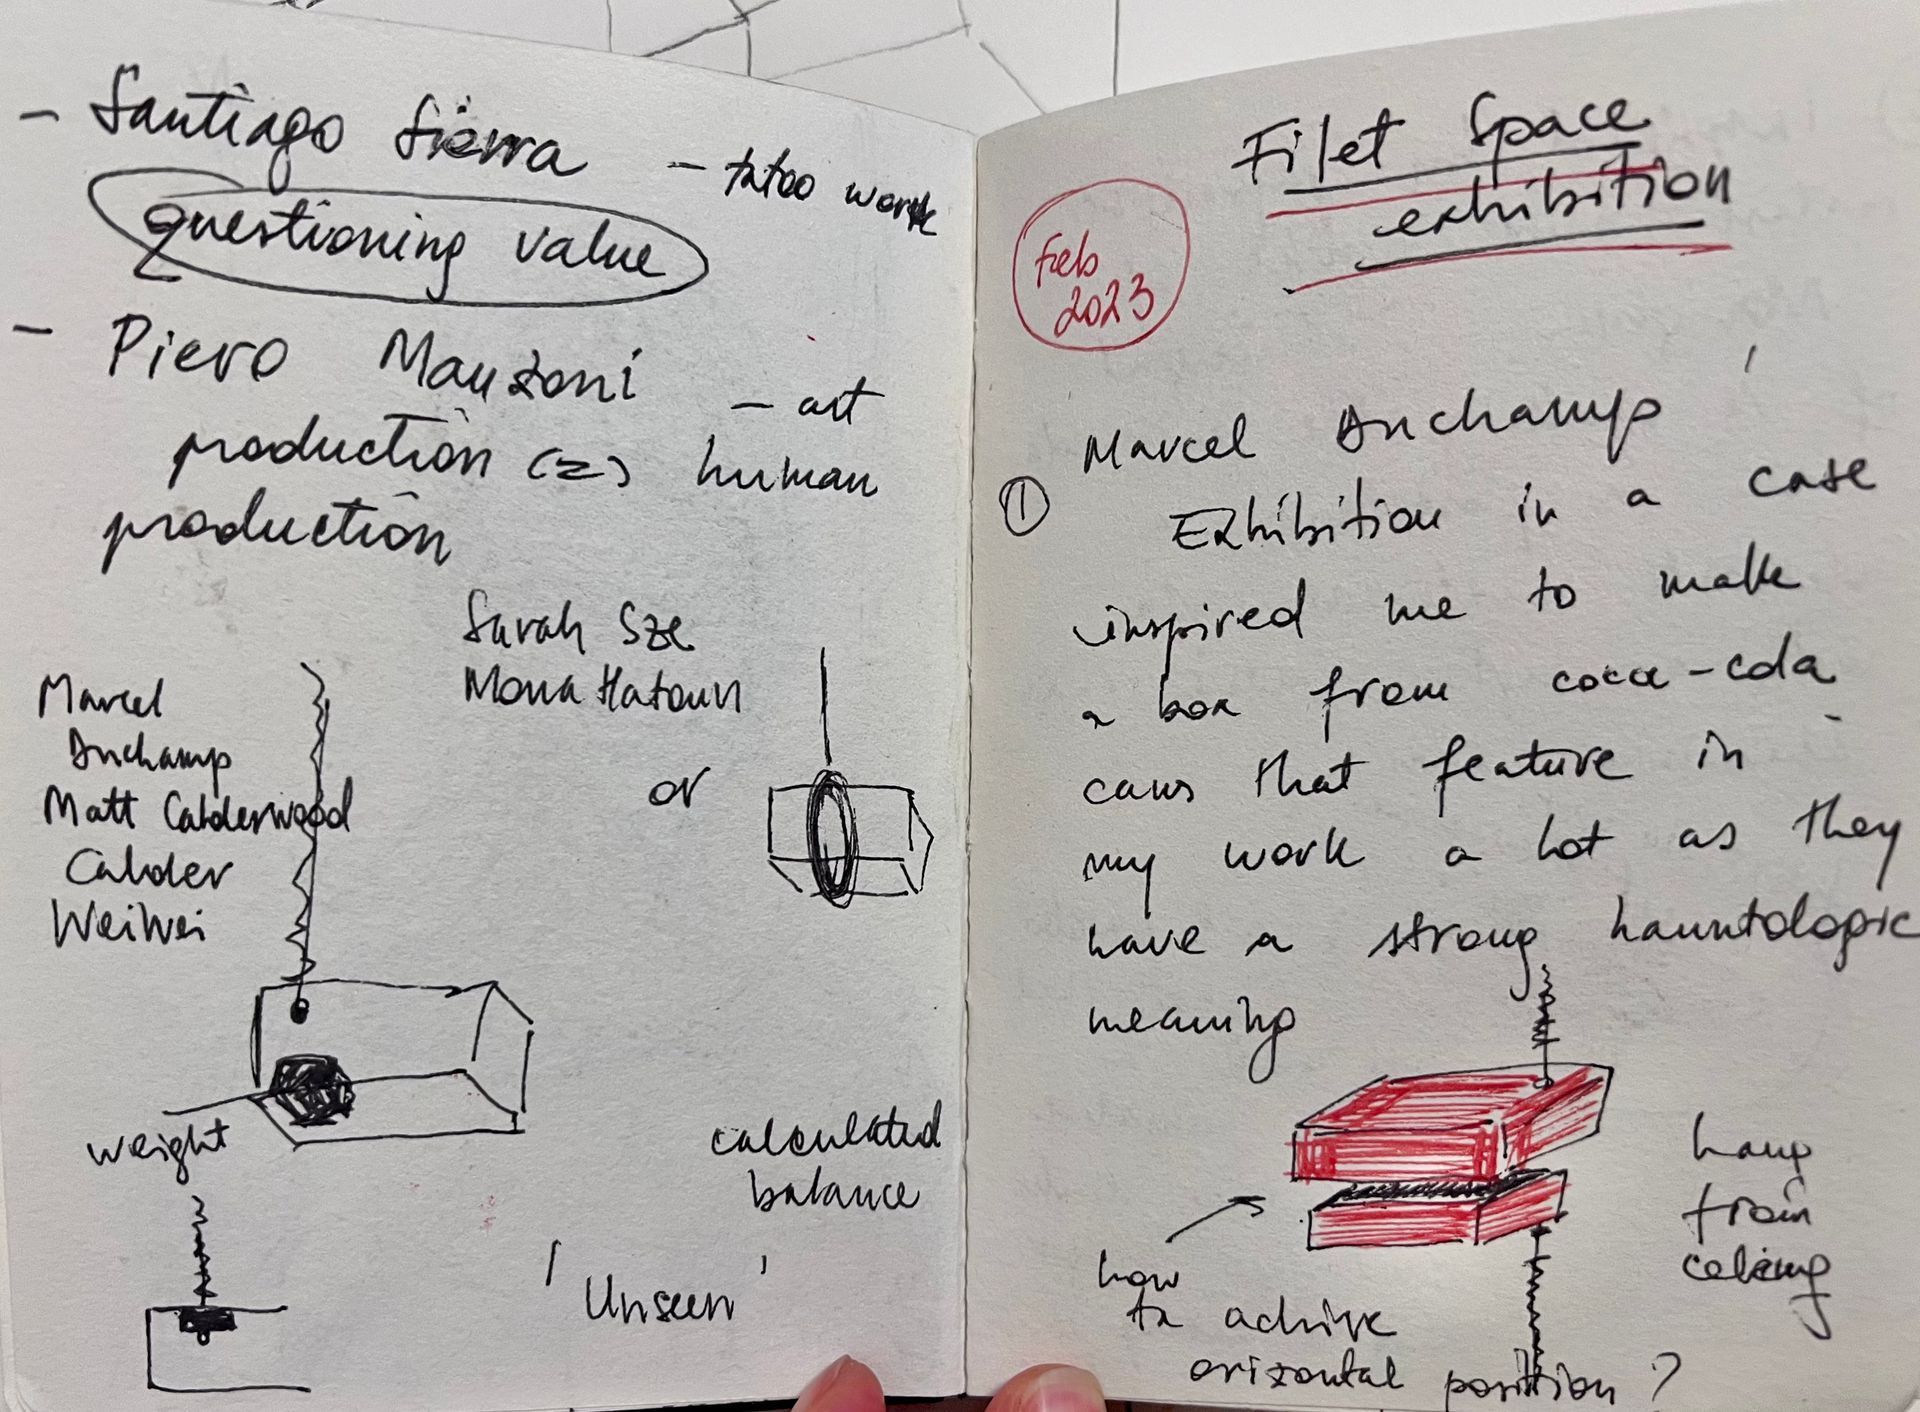 - Santiago Sierra - tatoo work
questioning value
- Piero Manzoni - art
production (=) human
production
Sarah Sze
Mona Hatoun
Marcel
Duchamp
Matt Calderwood
Calder
WeiWei
or
weight
calculated
balance
'Unseen'
Filet Space
exhibition
Feb
2023
① Marcel Duchamp'
Exhibition in a case
inspired me to make
a box from coca-cola
cans that feature in
my work a lot as they
have a strong hauntologic
meaning
hang
from
celing
how
to achive
orizontal position?